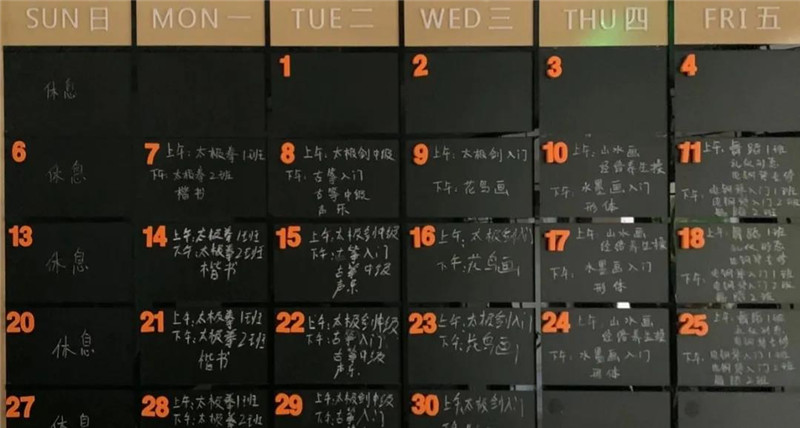 SUN 日 MON 一 TUE 二 WED 三 THU 四 FRI 五
休息
1
2
3
4
6
休息
7
上午:太极拳1班
下午:太极拳2班
楷书
8
上午:太极剑中级
下午:古筝入门
古筝中级
声乐
9
上午:太极剑入门
下午:花鸟画
10
上午:山水画
经络养生操
下午:水墨画入门
形体
11
上午:舞蹈1班
礼仪形态
电钢琴进修
下午:电钢琴入门1班
电钢琴入门2班
舞蹈2班
13
休息
14
上午:太极拳1班
下午:太极拳2班
楷书
15
上午:太极剑中级
下午:古筝入门
古筝中级
声乐
16
上午:太极剑入门
下午:花鸟画
17
上午:山水画
经络养生操
下午:水墨画入门
形体
18
上午:舞蹈1班
礼仪形态
下午:电钢琴入门1班
电钢琴入门2班
舞蹈2班
20
休息
21
上午:太极拳1班
下午:太极拳2班
楷书
22
上午:太极剑中级
下午:古筝入门
古筝中级
声乐
23
上午:太极剑入门
下午:花鸟画
24
上午:山水画
经络养生操
下午:水墨画入门
形体
25
上午:舞蹈1班
礼仪形态
下午:电钢琴入门1班
电钢琴入门2班
舞蹈2班
27
休息
28
上午:太极拳1班
下午:太极拳2班
29
上午:太极剑中级
下午:古筝入门
30
上午:太极剑入门